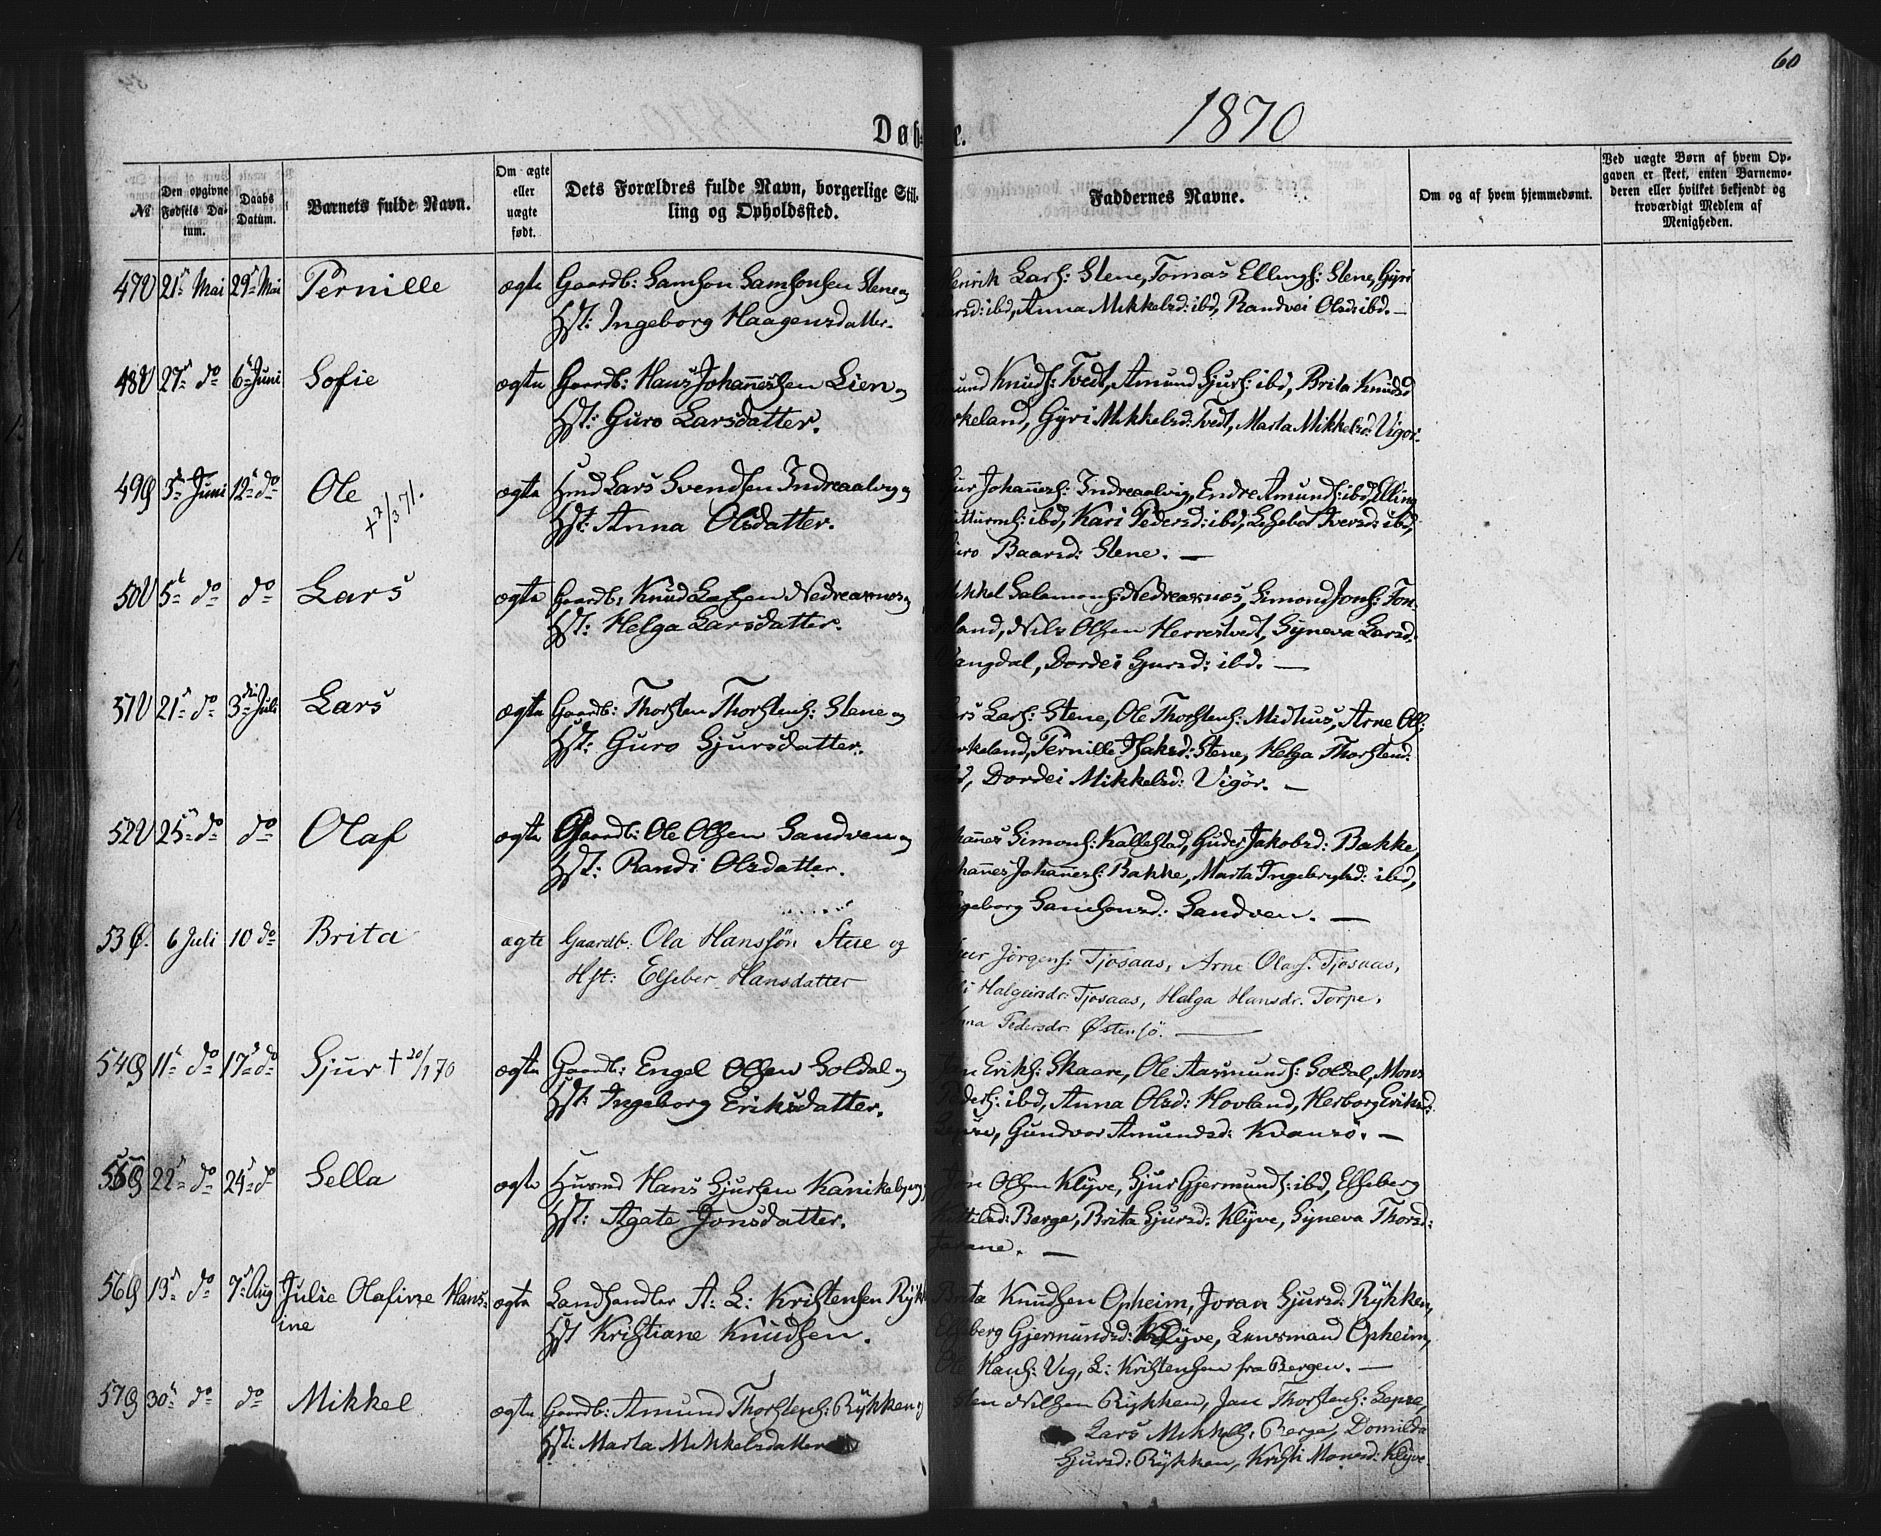 60
1870
Døb e.
№
Den opgivne Fødsels Datum.
Daabs Datum.
Barnets fulde Navn.
Om ægte eller uægte født.
Dets Forældres fulde Navn, borgerlige Stilling og Opholdssted.
Faddernes Navne.
Om og af hvem hjemmedømt.
Ved uægte Børn af hvem Opgaven er skeet, enten Barnemoderen eller hvilket bekjendt og troværdigt Medlem af Menigheden.
47V 21 Mai 29 Mai Pernille ægte Gaardb: Samson Samsonsen Stene og
Hst: Ingeborg Haagensdatter.
Henrik Lars: Stene, Tomas Ellings: Stene, Gyri
Larsd: ibd, Anna Mikkelsd: ibd, Randvei Olsd: ibd. —
48V 27 do 6 Juni Sofie ægte Gaardb: Hans Johannessen Lien og
Hst: Guro Larsdatter.
Knuds: Tvedt, Amund Sjurs: ibd, Brita Knudsd
Birkeland, Gyri Mikkelsd: Tvedt, Marta Mikkelsd: Vigør.
49Ø 3 Juni 12 do Ole ægte Hmd Lars Svendsen Indreaalvig og
+ 2/3 71.
Hst: Anna Olsdatter.
Sjur Johannes: Indreaalvig, Endre Amunds: ibd, Elling
Gutturms: ibd, Kari Pedersd: ibd, Iversd: ibd,
Guro Baarsd: Stene. —
50V 5 do do Lars ægte Gaardb: Knud Larsen Nedreaxnes og
Hst: Helga Larsdatter.
Mikkel Salamons: Nedreaxnes, Simond Jons:
land, Nils Olsen Herrestvedt, Syneva Larsd:
Vangdal, Dordei Sjursd: ibd. —
51V 21 do 3 Juli Lars ægte Gaardb: Thorsten Thorstens: Stene og
Hst: Guro Sjursdatter.
Lars Lars: Stene, Ole Thorstens: Midhus, Arne Ols:
Birkeland, Pernille Isaksd: Stene, Helga Thorstend:
ibd, Dordei Mikkelsd: Vigør. —
52V 25 do do Olaf ægte Gaardb: Ole Olsen Sandven og
Hst: Randi Olsdatter.
Johannes Simons: Kallestad, Jakobsd: Bakke,
Johannes Johannes: Bakke, Marta Ingebrgtsd: ibd,
Ingeborg Samsonsd: Sandven. —
53Ø. 6 Juli 10 do Brita ægte Gaardb: Ola Hanssön Stue og
Hst: Elseber Hansdatter
Jörgens: Tjosaas, Arne Olas: Tjosaas,
Halgeirsdr: Tjosaas, Helga Hansdr. Torpe,
Anna Pedersdr Østensö. —
54Ø 11 do 17 do Sjur + 20/7 70 ægte Gaardb: Engel Olsen Soldal og
Hst: Ingeborg Eriksdatter.
Eriks: Skaare, Ole Aasmunds: Soldal, Mons
Peders: ibd, Anna Olsd: Hovland, Herborg Eriksd:
Lepsø, Gundvor Amundsd: Kvansö. —
55Ø 22 do 24 do Sella ægte Husmd Hans Sjursen Kanikeby og
Hst: Agate Jonsdatter.
Olsen Klyve, Sjur Gjermunds: ibd, Elseberg
Kittelsd: Berge, Brita Sjursd: Klyve, Syneva Thorsd:
Jarane. —
56Ø 13 do 7 Aug Julie Olafine Hansine ægte Landhandler A. L: Kristensen Rÿk
Hst Kristiane Knudsen.
Brita Knudsen Opheim, Joran Sjursd: Rÿkken,
Elseberg Gjermundsd: Klÿve, Lensmand Opheim,
Ole Hans: Vig, L: Kristensen fra Bergen. —
57Ø 30 do do Mikkel ægte Gaardb: Amund Thorstens: Rÿkken og
Hst: Marta Mikkelsdatter
Nilsen Rykken, Jan Thorstens: Lepsø,
Lars Mikkels: Berge, Domilda
Sjursd: Rÿkken, Kristi Monsd: Klyve